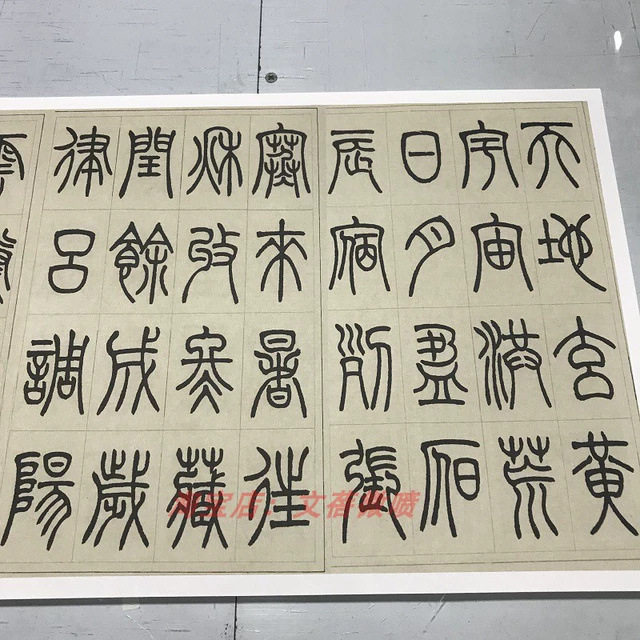 天地玄黃
宇宙洪荒
日月盈昃
辰宿列張
寒來暑往
秋收冬藏
閏餘成歲
律呂調陽
淘宝店：文